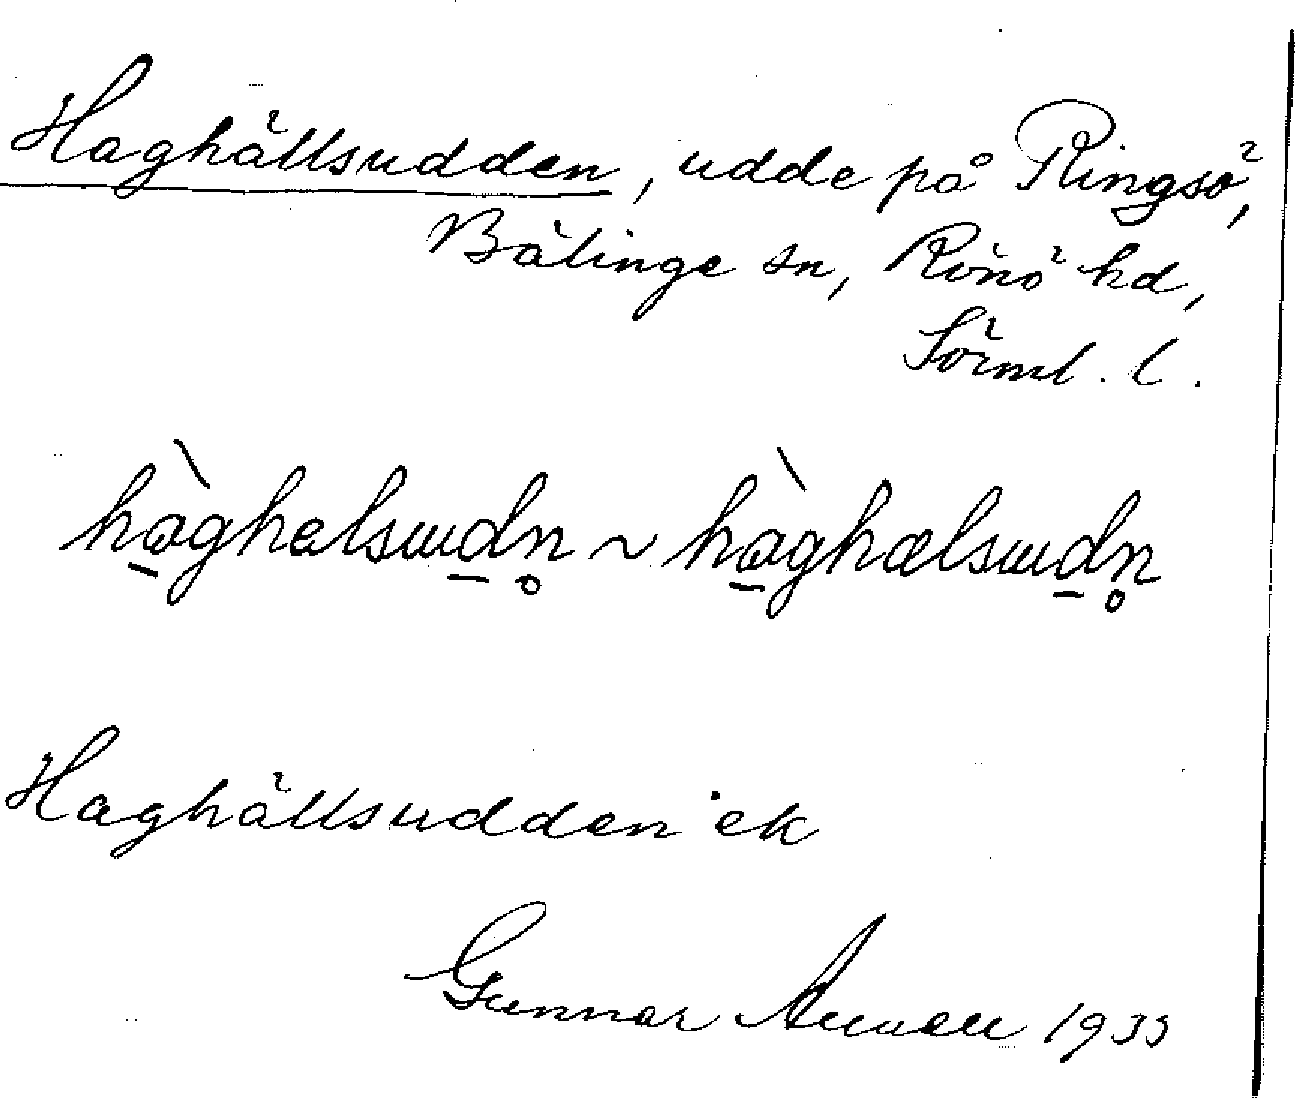 Haghällsudden, udde på Ringsö,
Bälinge sn, Rönö hd,
Sörml. l.
hàghalsɯdn̥ ~ hàghælsɯdn̥
Haghällsudden ek
Gunnar 1933